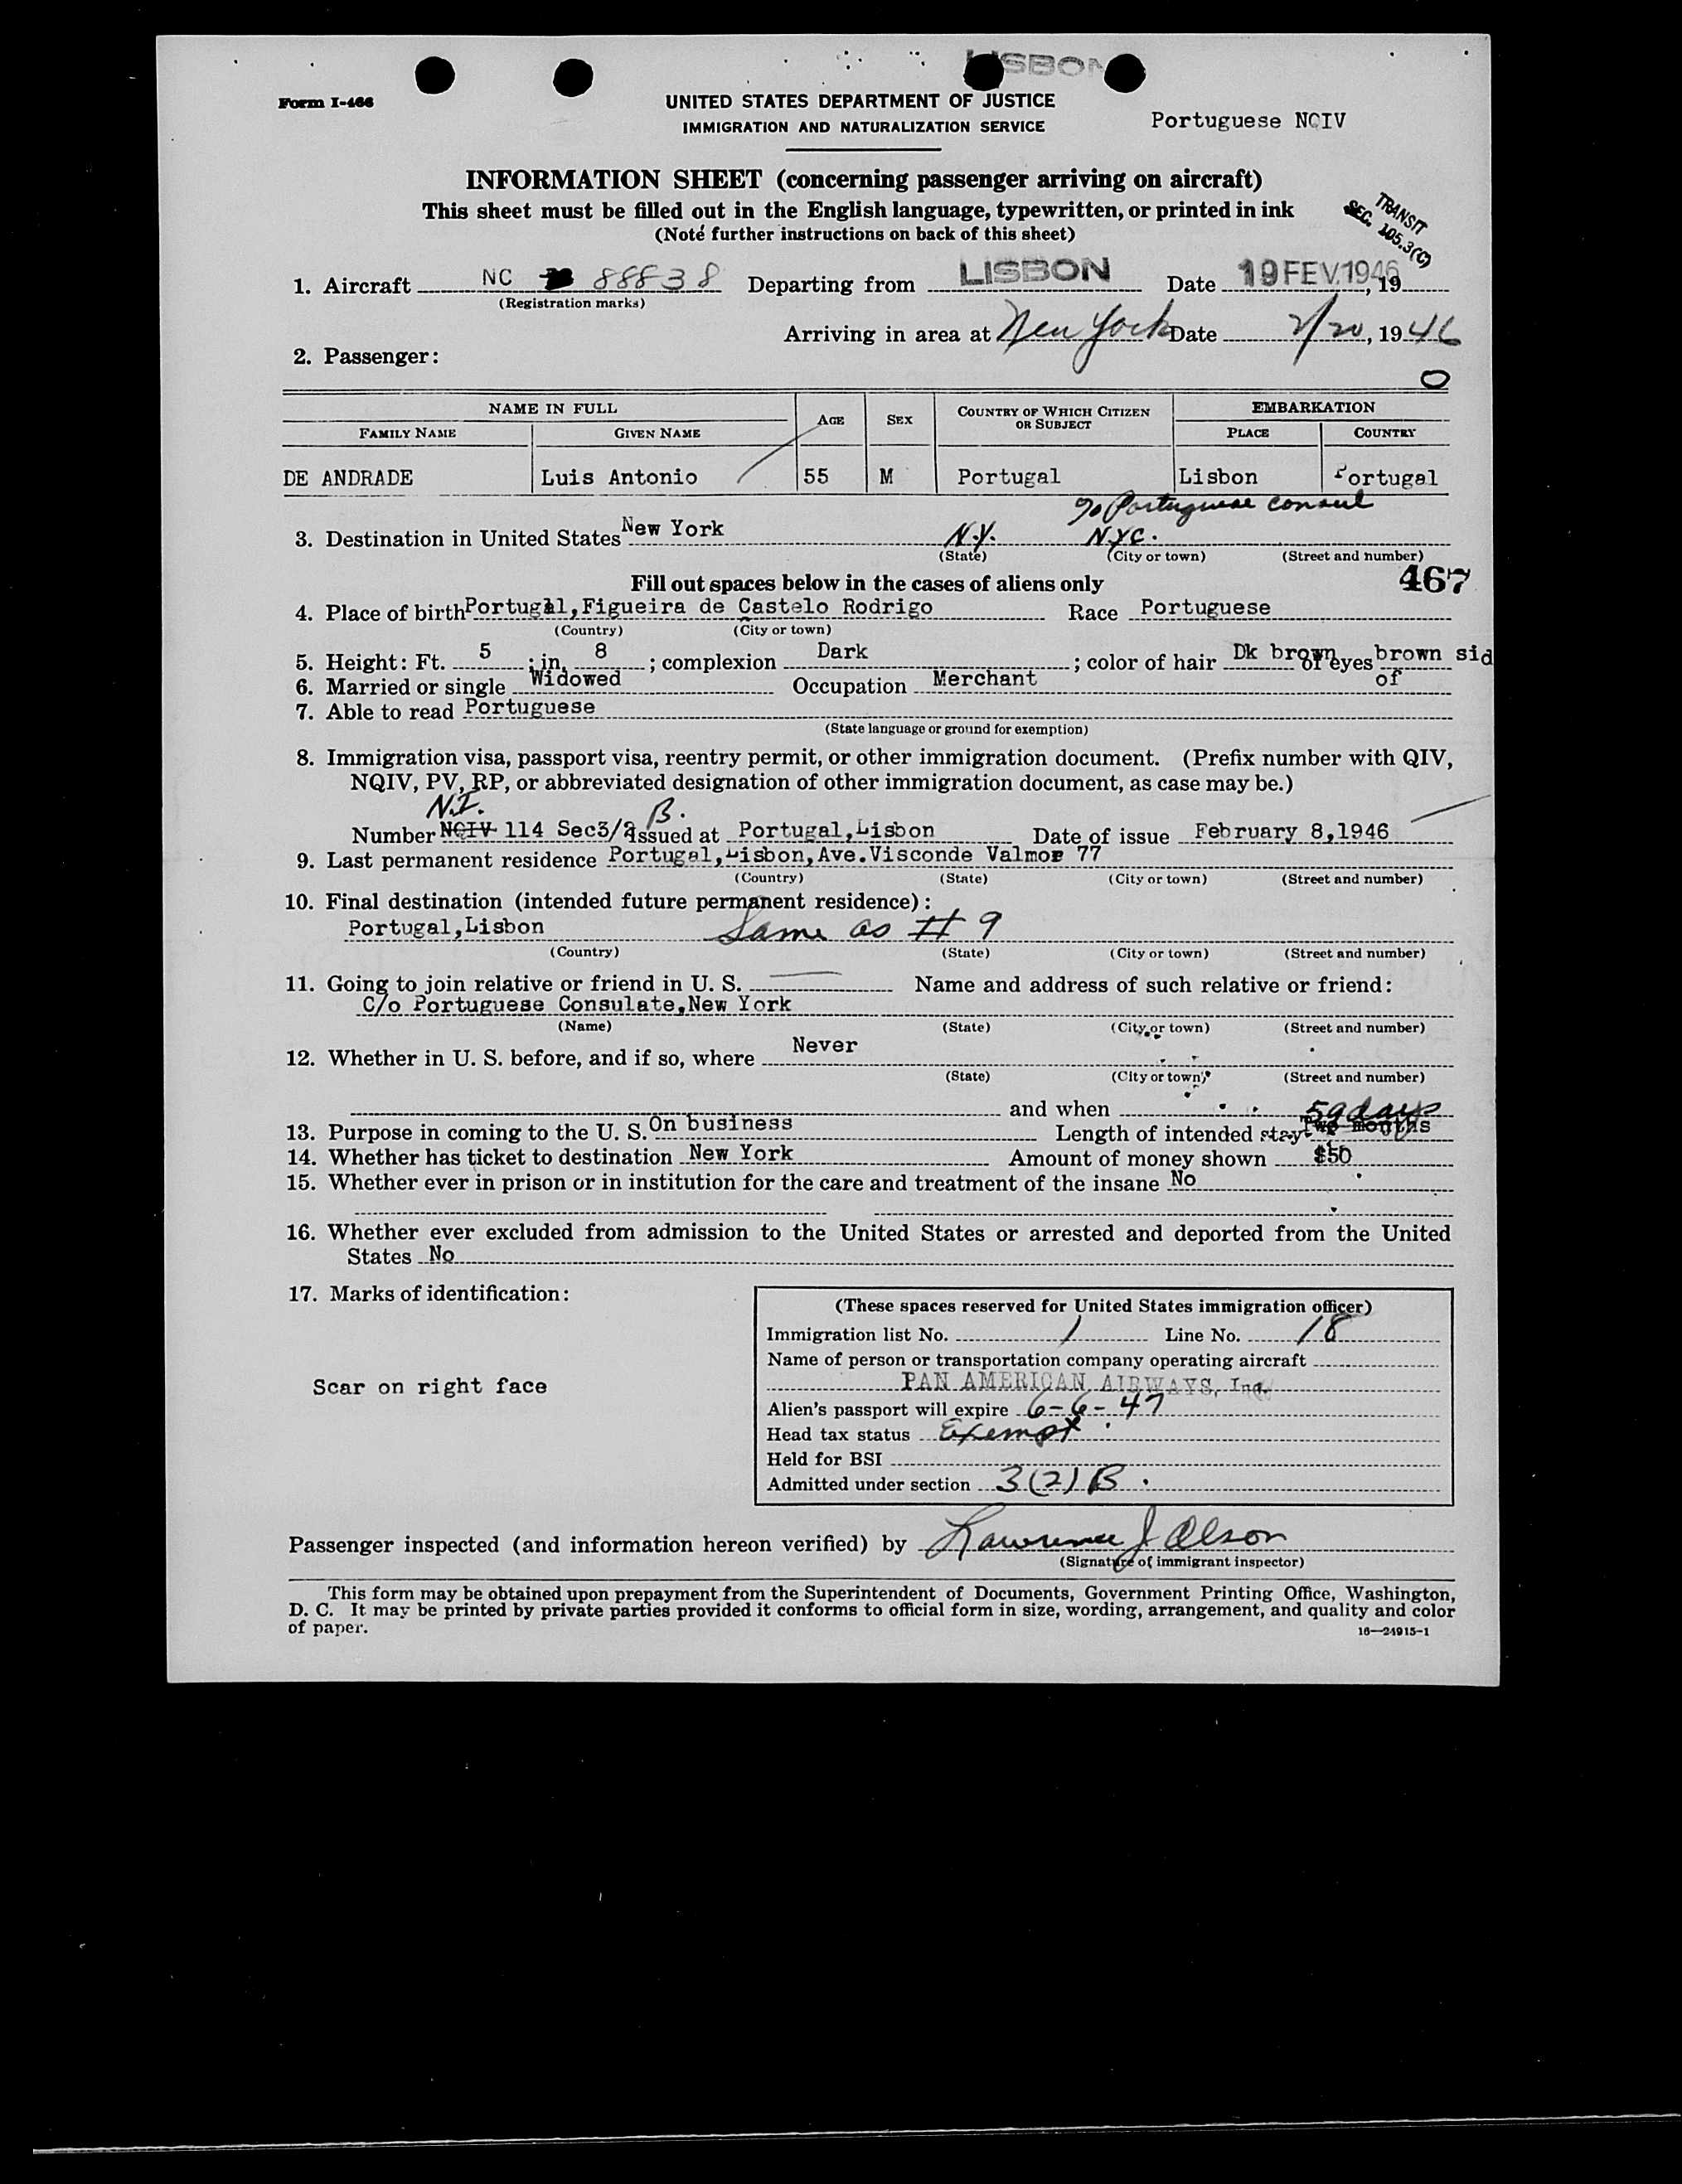 LISBON
Form I-466
UNITED STATES DEPARTMENT OF JUSTICE
IMMIGRATION AND NATURALIZATION SERVICE
Portuguese NCIV
INFORMATION SHEET (concerning passenger arriving on aircraft)
This sheet must be filled out in the English language, typewritten, or printed in ink
(Note further instructions on back of this sheet)
TRANSIT
SEC. 105.3(C)
1. Aircraft NC 88838 Departing from LISBON Date 19 FEV.1946, 19
(Registration marks)
Arriving in area at New York Date 2/20, 1946
2. Passenger:
O
NAME IN FULL AGE SEX COUNTRY OF WHICH CITIZEN OR SUBJECT EMBARKATION
FAMILY NAME GIVEN NAME PLACE COUNTRY
DE ANDRADE Luis Antonio 55 M Portugal Lisbon Portugal
c/o Portuguese consul
3. Destination in United States New York N.Y. NYC.
(State) (City or town) (Street and number)
Fill out spaces below in the cases of aliens only 467
4. Place of birth Portugal, Figueira de Castelo Rodrigo Race Portuguese
(Country) (City or town)
5. Height: Ft. 5 ; in. 8 ; complexion Dark ; color of hair Dk brown of eyes brown sid
6. Married or single Widowed Occupation Merchant of
7. Able to read Portuguese
(State language or ground for exemption)
8. Immigration visa, passport visa, reentry permit, or other immigration document. (Prefix number with QIV,
NQIV, PV, RP, or abbreviated designation of other immigration document, as case may be.)
N.I. B.
Number NCIV 114 Sec3/2 issued at Portugal, Lisbon Date of issue February 8,1946
9. Last permanent residence Portugal, Lisbon, Ave. Visconde Valmor 77
(Country) (State) (City or town) (Street and number)
10. Final destination (intended future permanent residence):
Portugal, Lisbon Same as # 9
(Country) (State) (City or town) (Street and number)
11. Going to join relative or friend in U. S. Name and address of such relative or friend:
C/o Portuguese Consulate, New York
(Name) (State) (City or town) (Street and number)
12. Whether in U. S. before, and if so, where Never
(State) (City or town) (Street and number)
and when
59 days
13. Purpose in coming to the U. S. On business Length of intended stay Two months
14. Whether has ticket to destination New York Amount of money shown $50
15. Whether ever in prison or in institution for the care and treatment of the insane No
16. Whether ever excluded from admission to the United States or arrested and deported from the United
States No
17. Marks of identification:
Scar on right face
(These spaces reserved for United States immigration officer)
Immigration list No. 1 Line No. 18
Name of person or transportation company operating aircraft
PAN AMERICAN AIRWAYS, Inc.
Alien's passport will expire 6-6-47
Head tax status Exempt
Held for BSI
Admitted under section 3(2)B.
Passenger inspected (and information hereon verified) by Lawrence J Olson
(Signature of immigrant inspector)
This form may be obtained upon prepayment from the Superintendent of Documents, Government Printing Office, Washington,
D. C. It may be printed by private parties provided it conforms to official form in size, wording, arrangement, and quality and color
of paper.
16—24915-1